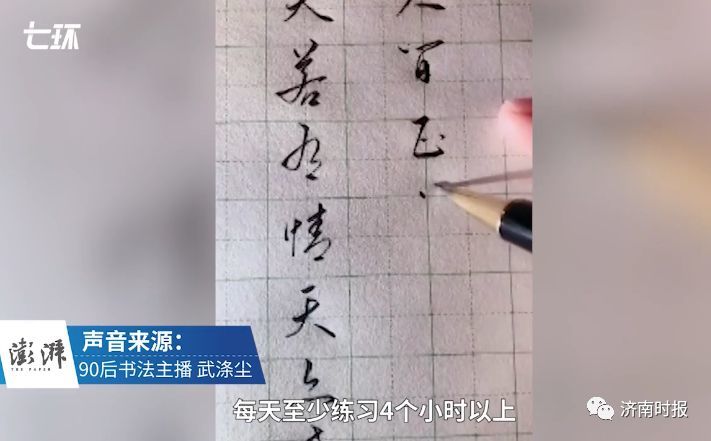 七环
天若有情天亦
人间正
澎湃
THE PAPER
声音来源：
90后书法主播 武涤尘
每天至少练习4个小时以上
济南时报